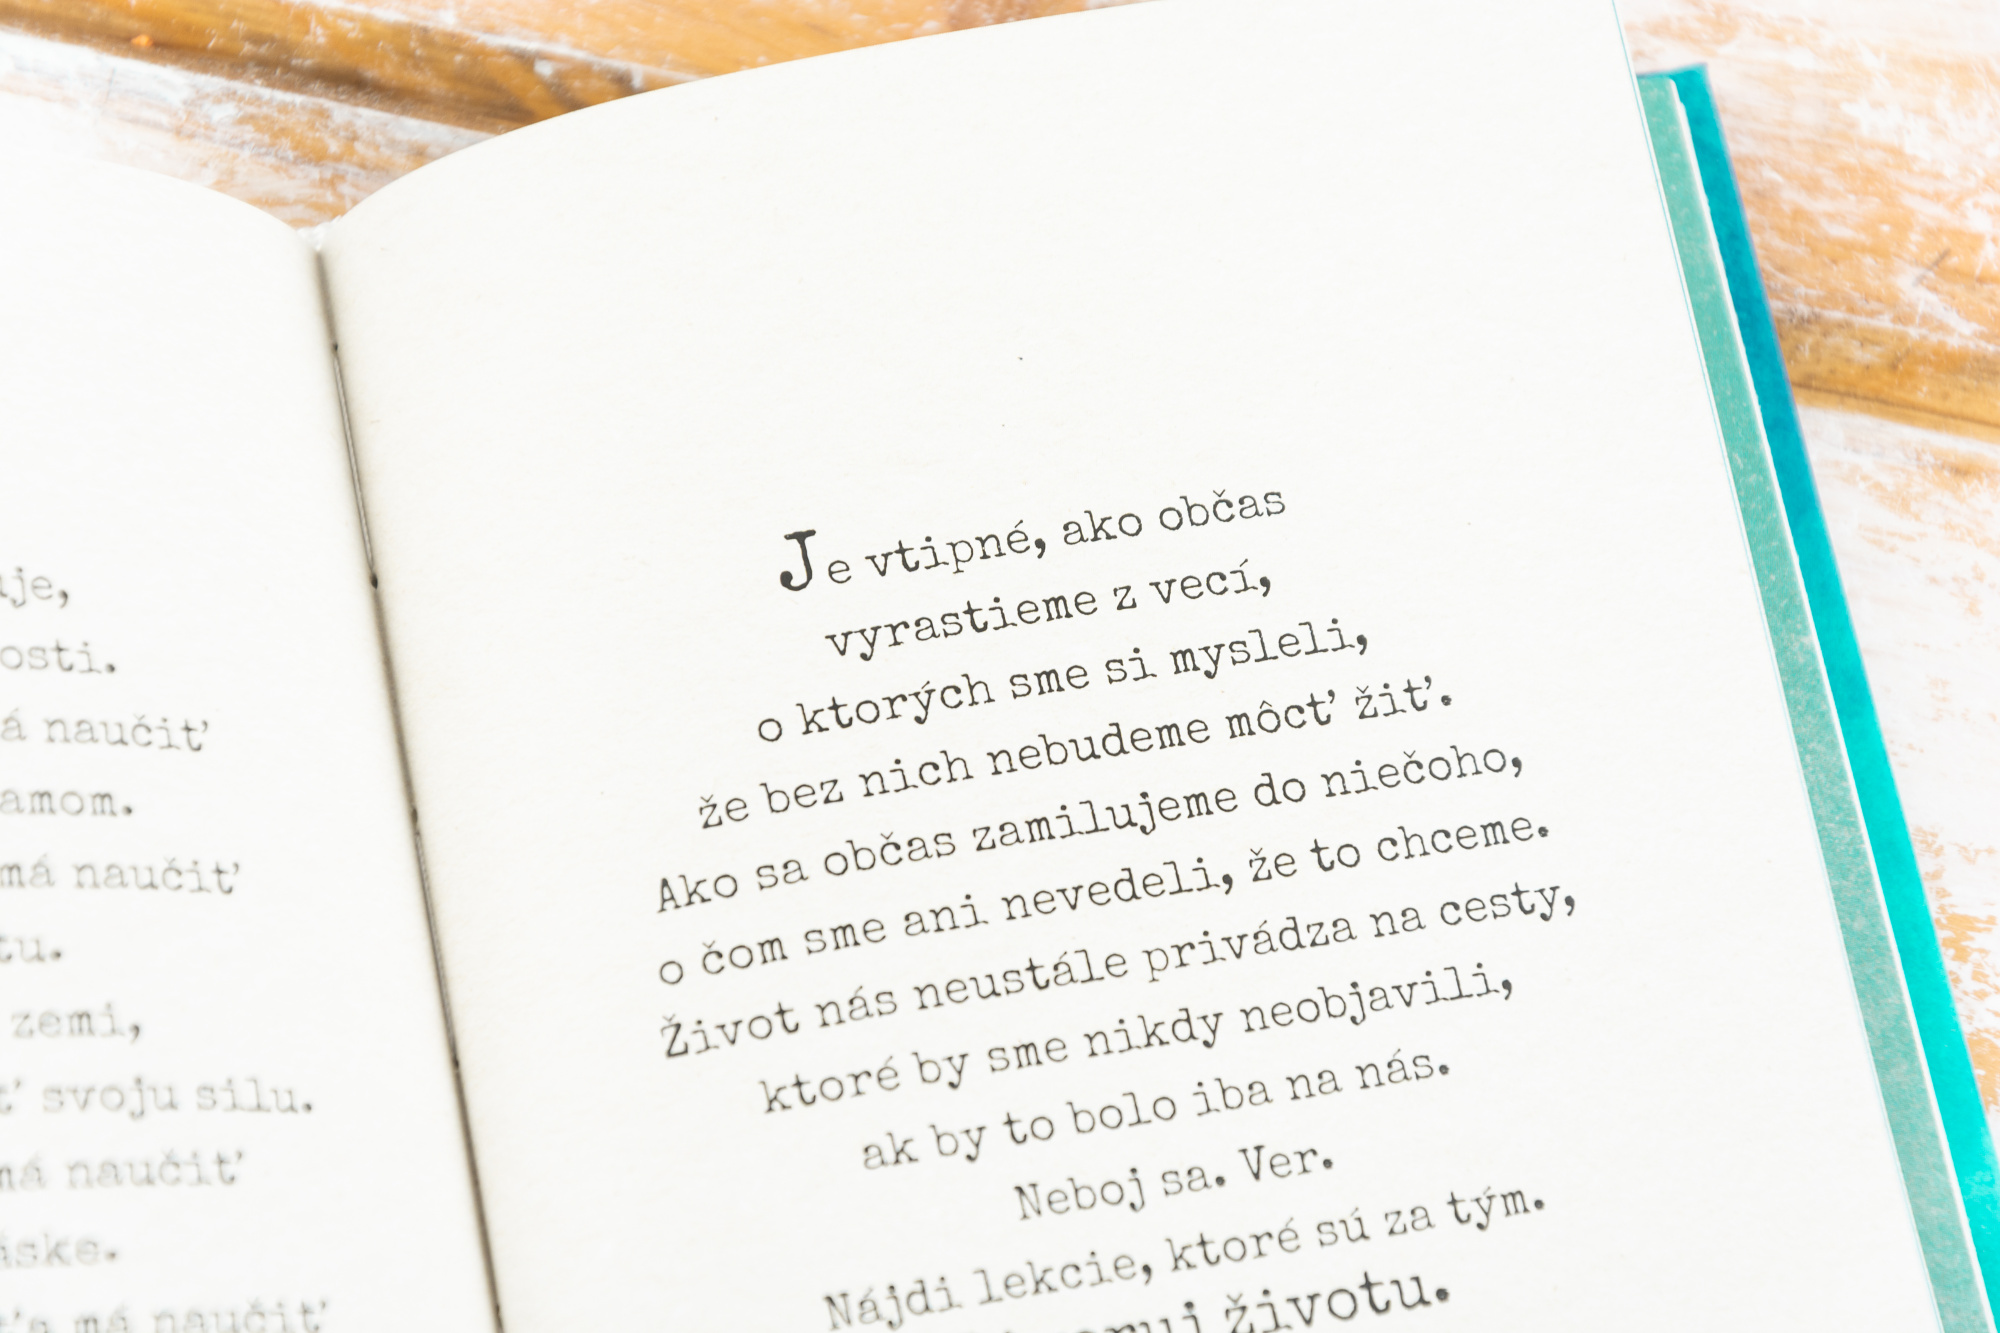 má naučiť
má naučiť
zemi,
svoju silu.
má naučiť
má naučiť
Je vtipné, ako občas
vyrastieme z vecí,
o ktorých sme si mysleli,
že bez nich nebudeme môcť žiť.
Ako sa občas zamilujeme do niečoho,
o čom sme ani nevedeli, že to chceme.
Život nás neustále privádza na cesty,
ktoré by sme nikdy neobjavili,
ak by to bolo iba na nás.
Neboj sa. Ver.
Nájdi lekcie, ktoré sú za tým.
životu.